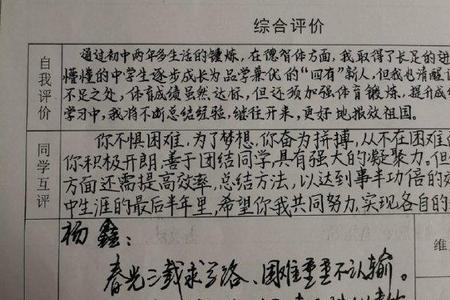 综合评价
自我评价
通过初中两年多生活的锤炼，在德智体方面，我取得了长足的进
懵懂的中学生逐步成长为品学兼优的“四有”新人，但我也清醒
不足之处，体育成绩虽然达标，但还须加强体育锻炼，提升
学习中，我将不断总结经验，继往开来，更好地报效祖国。
同学互评
你不惧困难，为了梦想，你奋力拼搏，从不在困难
你积极开朗，善于团结同学，具有强大的凝聚力。但
方面还需提高效率，总结方法，以达到事半功倍的
中生涯的最后半年里，希望你我共同努力，实现各自的
杨鑫：
维
春光三载求学路、困难重重不认输。